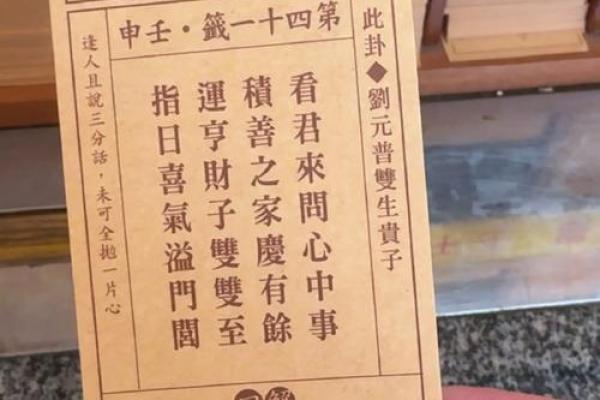 第四十一籤・壬申
此卦◆劉元普雙生貴子
看君來問心中事
積善之家慶有餘
運亨財子雙雙至
指日喜氣溢門閭
逢人且說三分話，未可全拋一片心